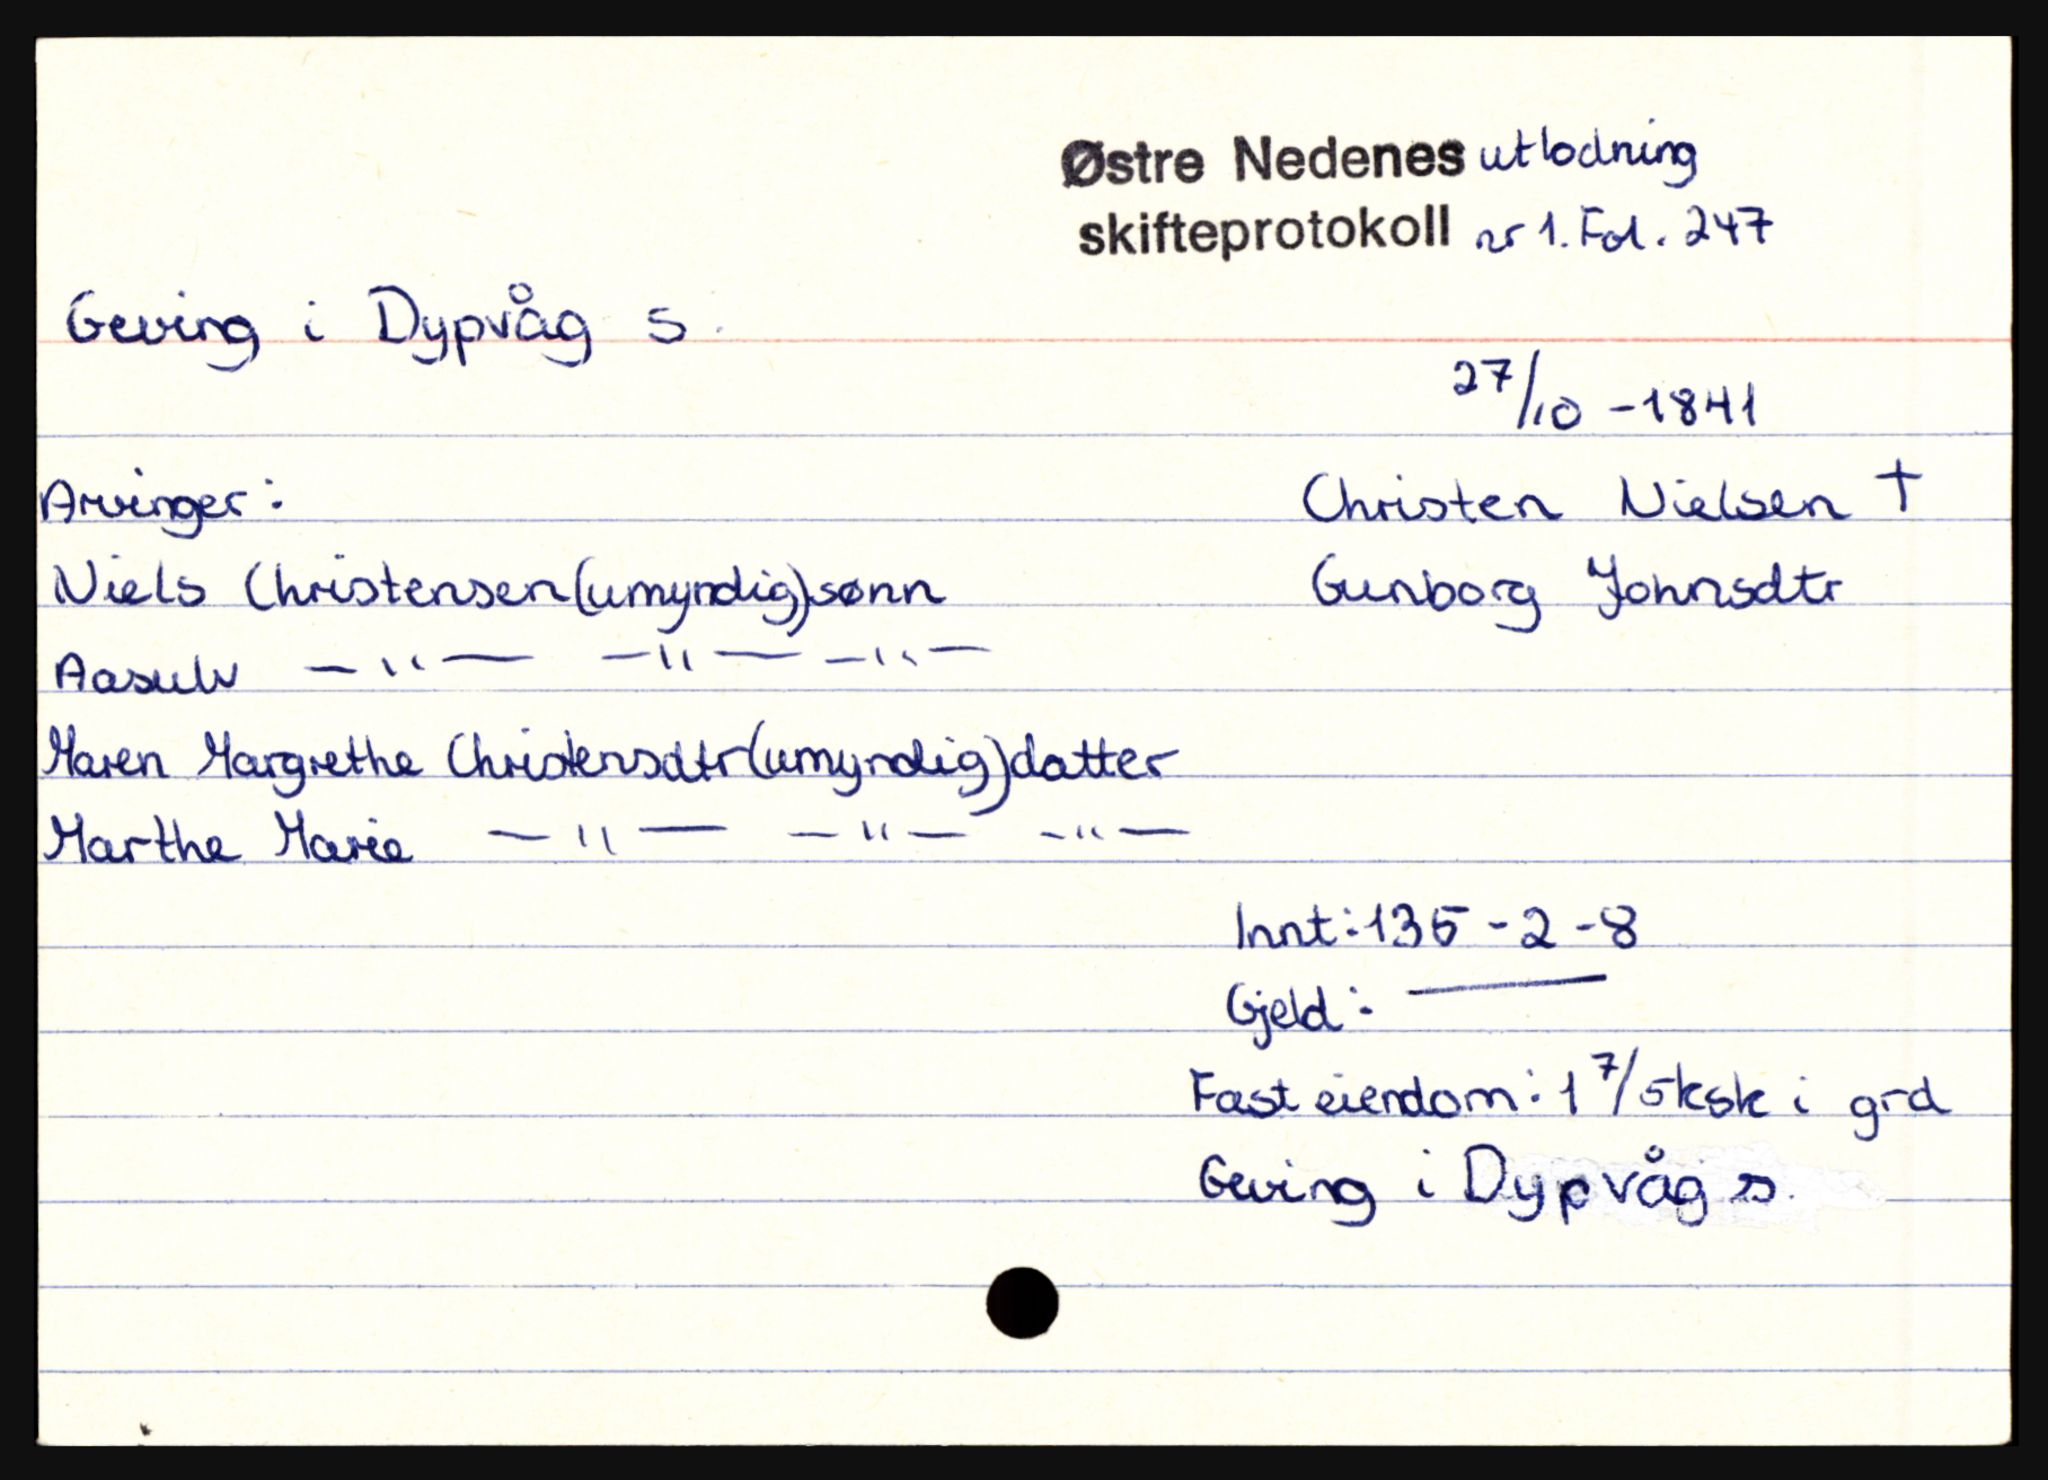 Østre Nedenes utlodning
skifteprotokoll nr 1. Fol. 247
Geving i Dypvåg s.
27/10 - 1841
Arvinger:
Christen Nielsen †
Niels Christensen (umyndig) sønn
Gunborg Johnsdtr
Aasulv — " — — " — — " —
Maren Margrethe Christensdtr (umyndig) datter
Marthe Marie — " — — " — — " —
Innt: 135 - 2 - 8
Gjeld: —
Fast eiendom: 1 7/5 ksk i grd
Geving i Dypvåg s.